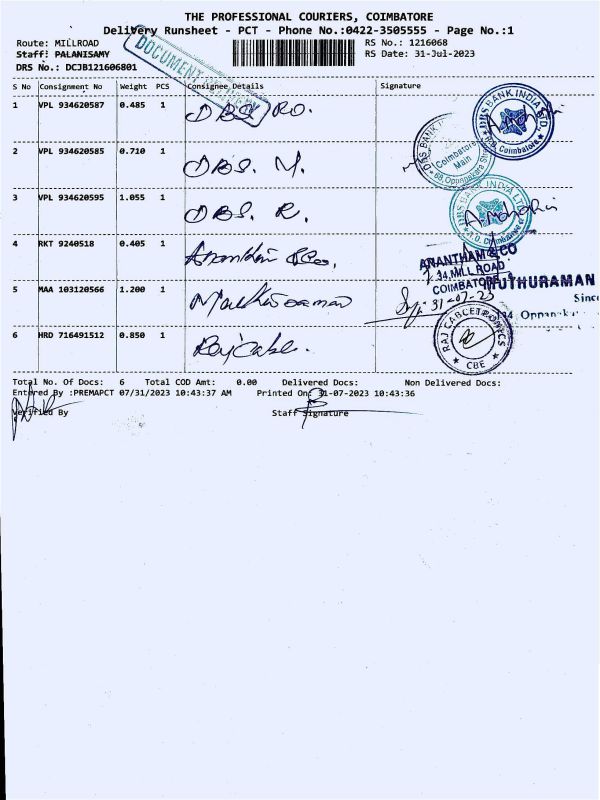 THE PROFESSIONAL COURIERS, COIMBATORE
Delivery Runsheet - PCT - Phone No.:0422-3505555 - Page No.:1
Route: MILLROAD
RS No.: 1216068
Staff: PALANISAMY
RS Date: 31-Jul-2023
DRS No.: DCJB121606801
DOCUMENT
S No Consignment No Weight PCS Consignee Details Signature
1 VPL 934620587 0.485 1 DBS, RO.
DBS BANK INDIA LTD., Coimbatore
2 VPL 934620585 0.710 1 DBS. M.
DBS BANK Coimbatore Main 68, Oppanakara
3 VPL 934620595 1.055 1 DBS. R.
DBS BANK INDIA LTD
4 RKT 9240518 0.405 1 Anantham & Co.
ANANTHAM & CO
34, MILL ROAD
COIMBATORE
5 MAA 103120566 1.200 1 Muthuraman
MUTHURAMAN
Since
31-07-23
Oppanaka
6 HRD 716491512 0.850 1 Raj Cabe.
RAJ CABCETRONICS CBE
Total No. Of Docs: 6 Total COD Amt: 0.00 Delivered Docs: Non Delivered Docs:
Entered By :PREMAPCT 07/31/2023 10:43:37 AM Printed On: 31-07-2023 10:43:36
Verified By Staff Signature